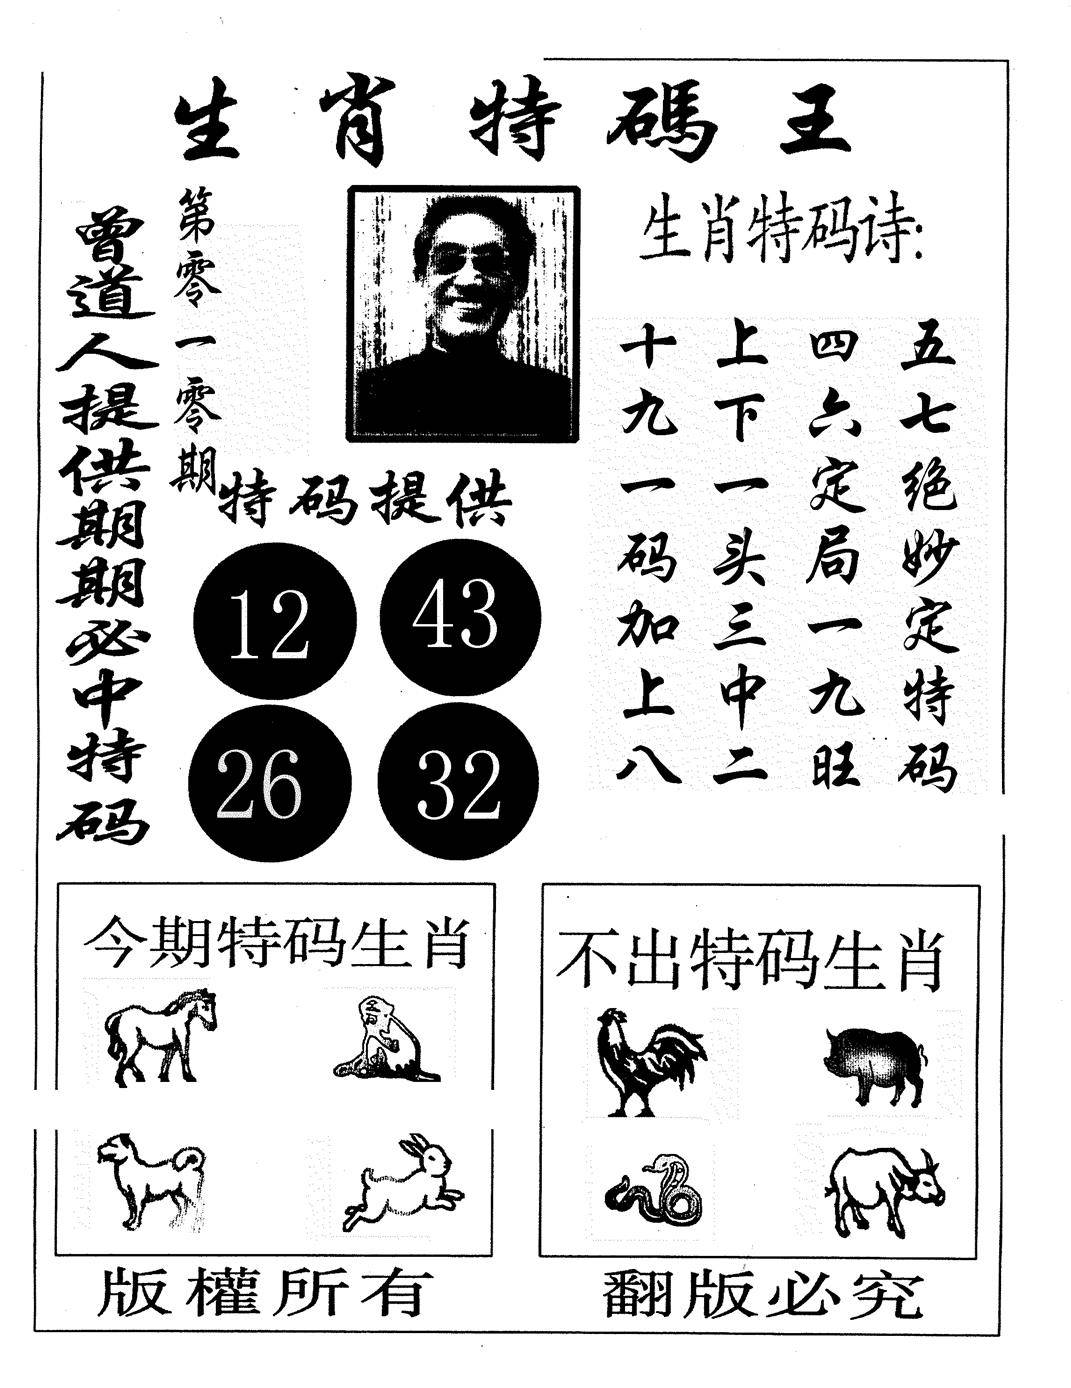 生肖特碼王
曾道人提供期期必中特码
第零一零期
生肖特码诗:
五七绝妙定特码
四六定局一九旺
上下一头三中二
十九一码加上八
特码提供
12 43
26 32
今期特码生肖
不出特码生肖
版權所有
翻版必究